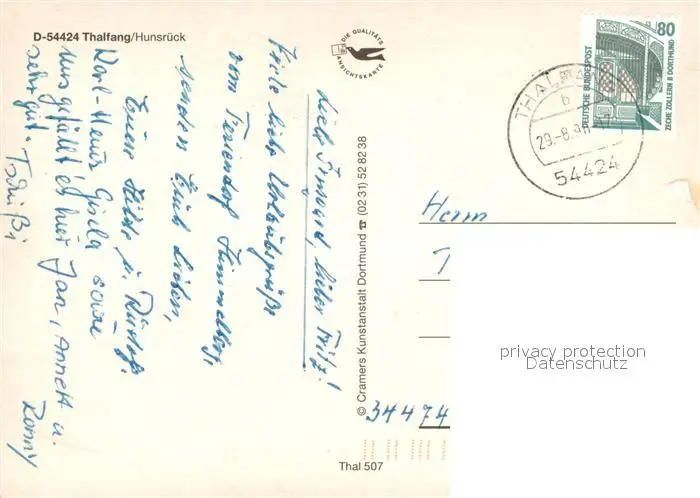 D-54424 Thalfang/Hunsrück
DIE QUALITÄTS
ANSICHTSKARTE
80
DEUTSCHE BUNDESPOST
ZECHE ZOLLERN II DORTMUND
THALFANG
b
29.-8.
54424
Liebe Irmgard, lieber Fritz!
Viele liebe Urlaubsgrüße
vom Feriendorf Himmelberg,
senden Euch Lieben,
Eure Hilde u. Rudolf.
Karl-Heinz Gisela sowie
uns gefällt es hier Jan, Annett u.
sehr gut. Tschüßi Ronny
© Cramers Kunstanstalt Dortmund ☎ (02 31) 52 82 38
Herrn
34474
Thal 507
privacy protection
Datenschutz